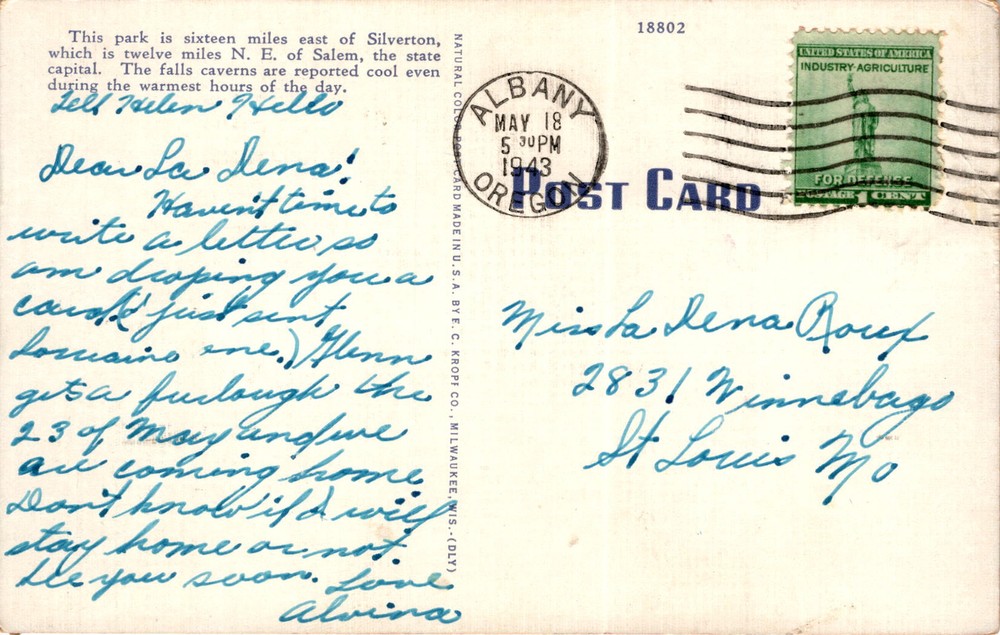 This park is sixteen miles east of Silverton,
which is twelve miles N. E. of Salem, the state
capital. The falls caverns are reported cool even
during the warmest hours of the day.
Tell Helen Hello
Dear La Dena!
Haven't time to
write a letter so
am droping you a
card (I just sent
Lorraine one.) Glenn
gets a furlough the
23 of May and we
are coming home.
Don't know if I will
stay home or not.
See you soon. Love
Alvina
NATURAL COLOR POST CARD MADE IN U.S.A. BY E. C. KROPF CO., MILWAUKEE, WIS.-(DLY)
18802
ALBANY
MAY 18
5 30 PM
1943
OREGON
POST CARD
UNITED STATES OF AMERICA
INDUSTRY·AGRICULTURE
FOR DEFENSE
POSTAGE 1 CENT
Miss La Dena Roux
2831 Winnebago
St Louis Mo